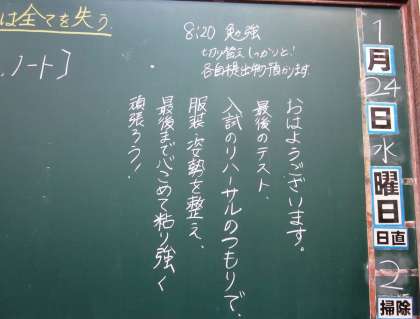 は全てを失う
ノート]
8:20 勉強
切り替えしっかりと!
各自提出物預かります
おはようございます。
最後のテスト、
入試のリハーサルのつもりで、
服装、姿勢を整え、
最後まで心こめて粘り強く
頑張ろう!
1
月
24
日
水
曜
日
日直
2
掃除